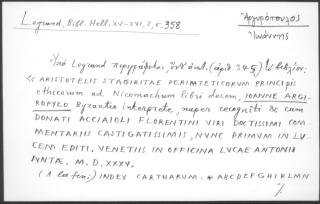 Legrand, Bibl. Hell. XV-XVI, 3, σ. 358
Ἀργυρόπουλος
Ἰωάννης
Ὑπὸ Legrand περιγράφεται, ἔνθ' ἀνωτ. (ἀριθ. 345) τὸ βιβλίον:
« ARISTOTELIS STAGIRITAE PERIPATETICORUM PRINCIPIS
ethicorum ad Nicomachum libri decem, IOANNE ARGI-
ROPYLO Byzantio interprete, nuper recogniti & cum
DONATI ACCIAIOLI FLORENTINI VIRI DOCTISSIMI COM-
MENTARIIS CASTIGATISSIMIS, NUNC PRIMUM IN LU-
CEM EDITI. VENETIIS IN OFFICINA LUCAE ANTONII
JUNTAE. M.D.XXXV.
(A la fin:) INDEX CARTHARUM. * ABCDEFGHIKLMN
%